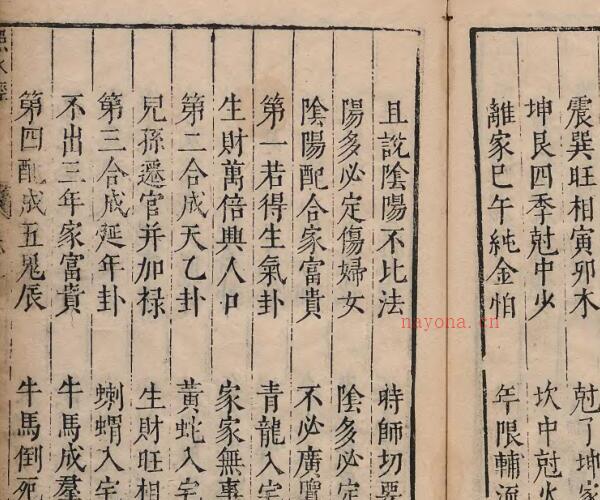 震巽旺相寅卯木 尅了坤家
坤艮四季尅中少 坎中尅水
離家巳午純金怕 年限輔
且說陰陽不比法 時師切要
陽多必定傷婦女 陰多必定
陰陽配合家富貴 不必廣覽
第一若得生氣卦 青龍入宅
生財萬倍興人口 家家無事
第二合成天乙卦 黃蛇入宅
兒孫遷官并加禄 生財旺相
第三合成延年卦 蝲蝟入宅
不出三年家富貴 牛馬成羣
第四配成五鬼辰 牛馬倒死
nayona.cn